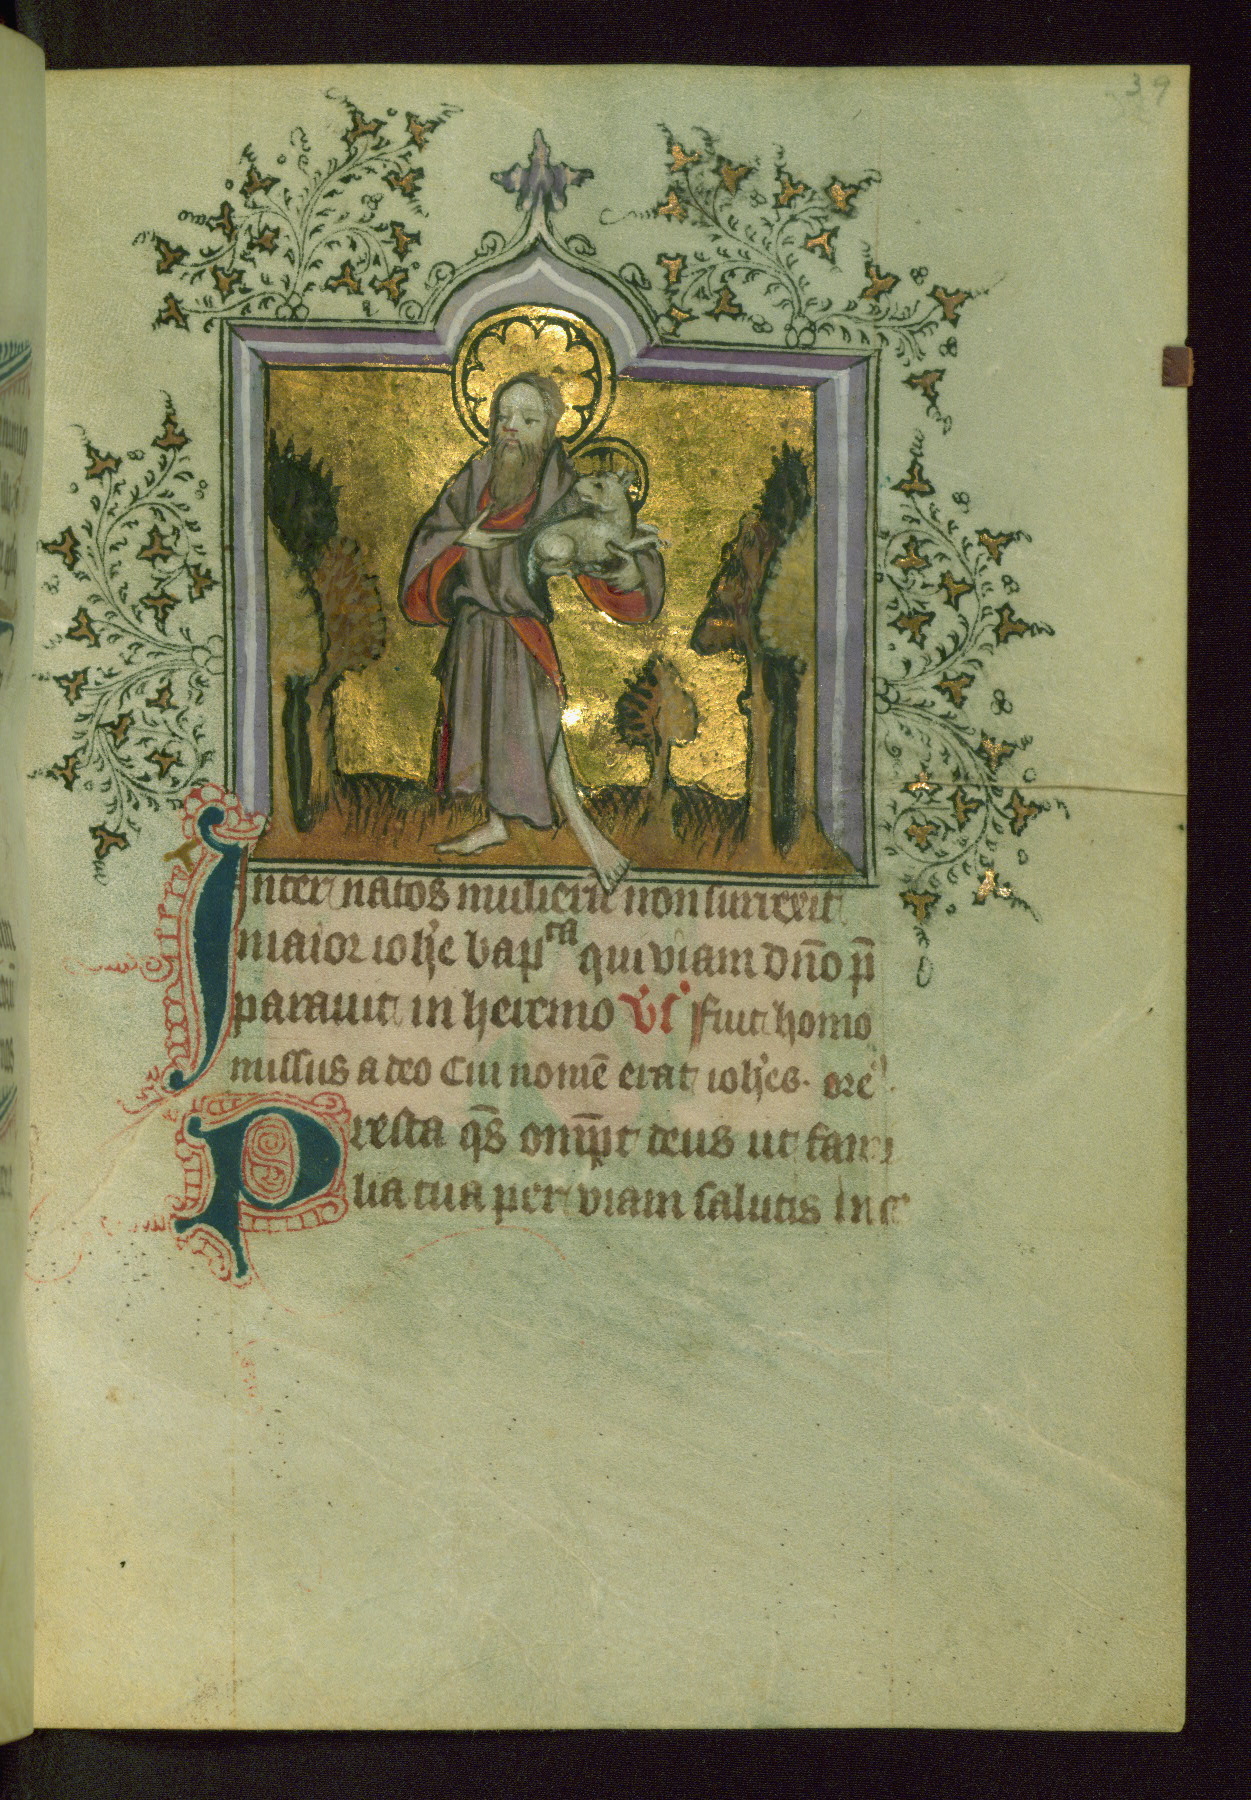 39
Inter natos mulierū non surrexit
maior ioh̄e bapᵗᵃ qui viam dn̄o p̄
parauit in heremo vs̄ ffuit homo
missus a deo Cui nomē erat ioh̄es. orē
Presta qs̄ omīpt deus ut fami
lia tua per viam salutis ince